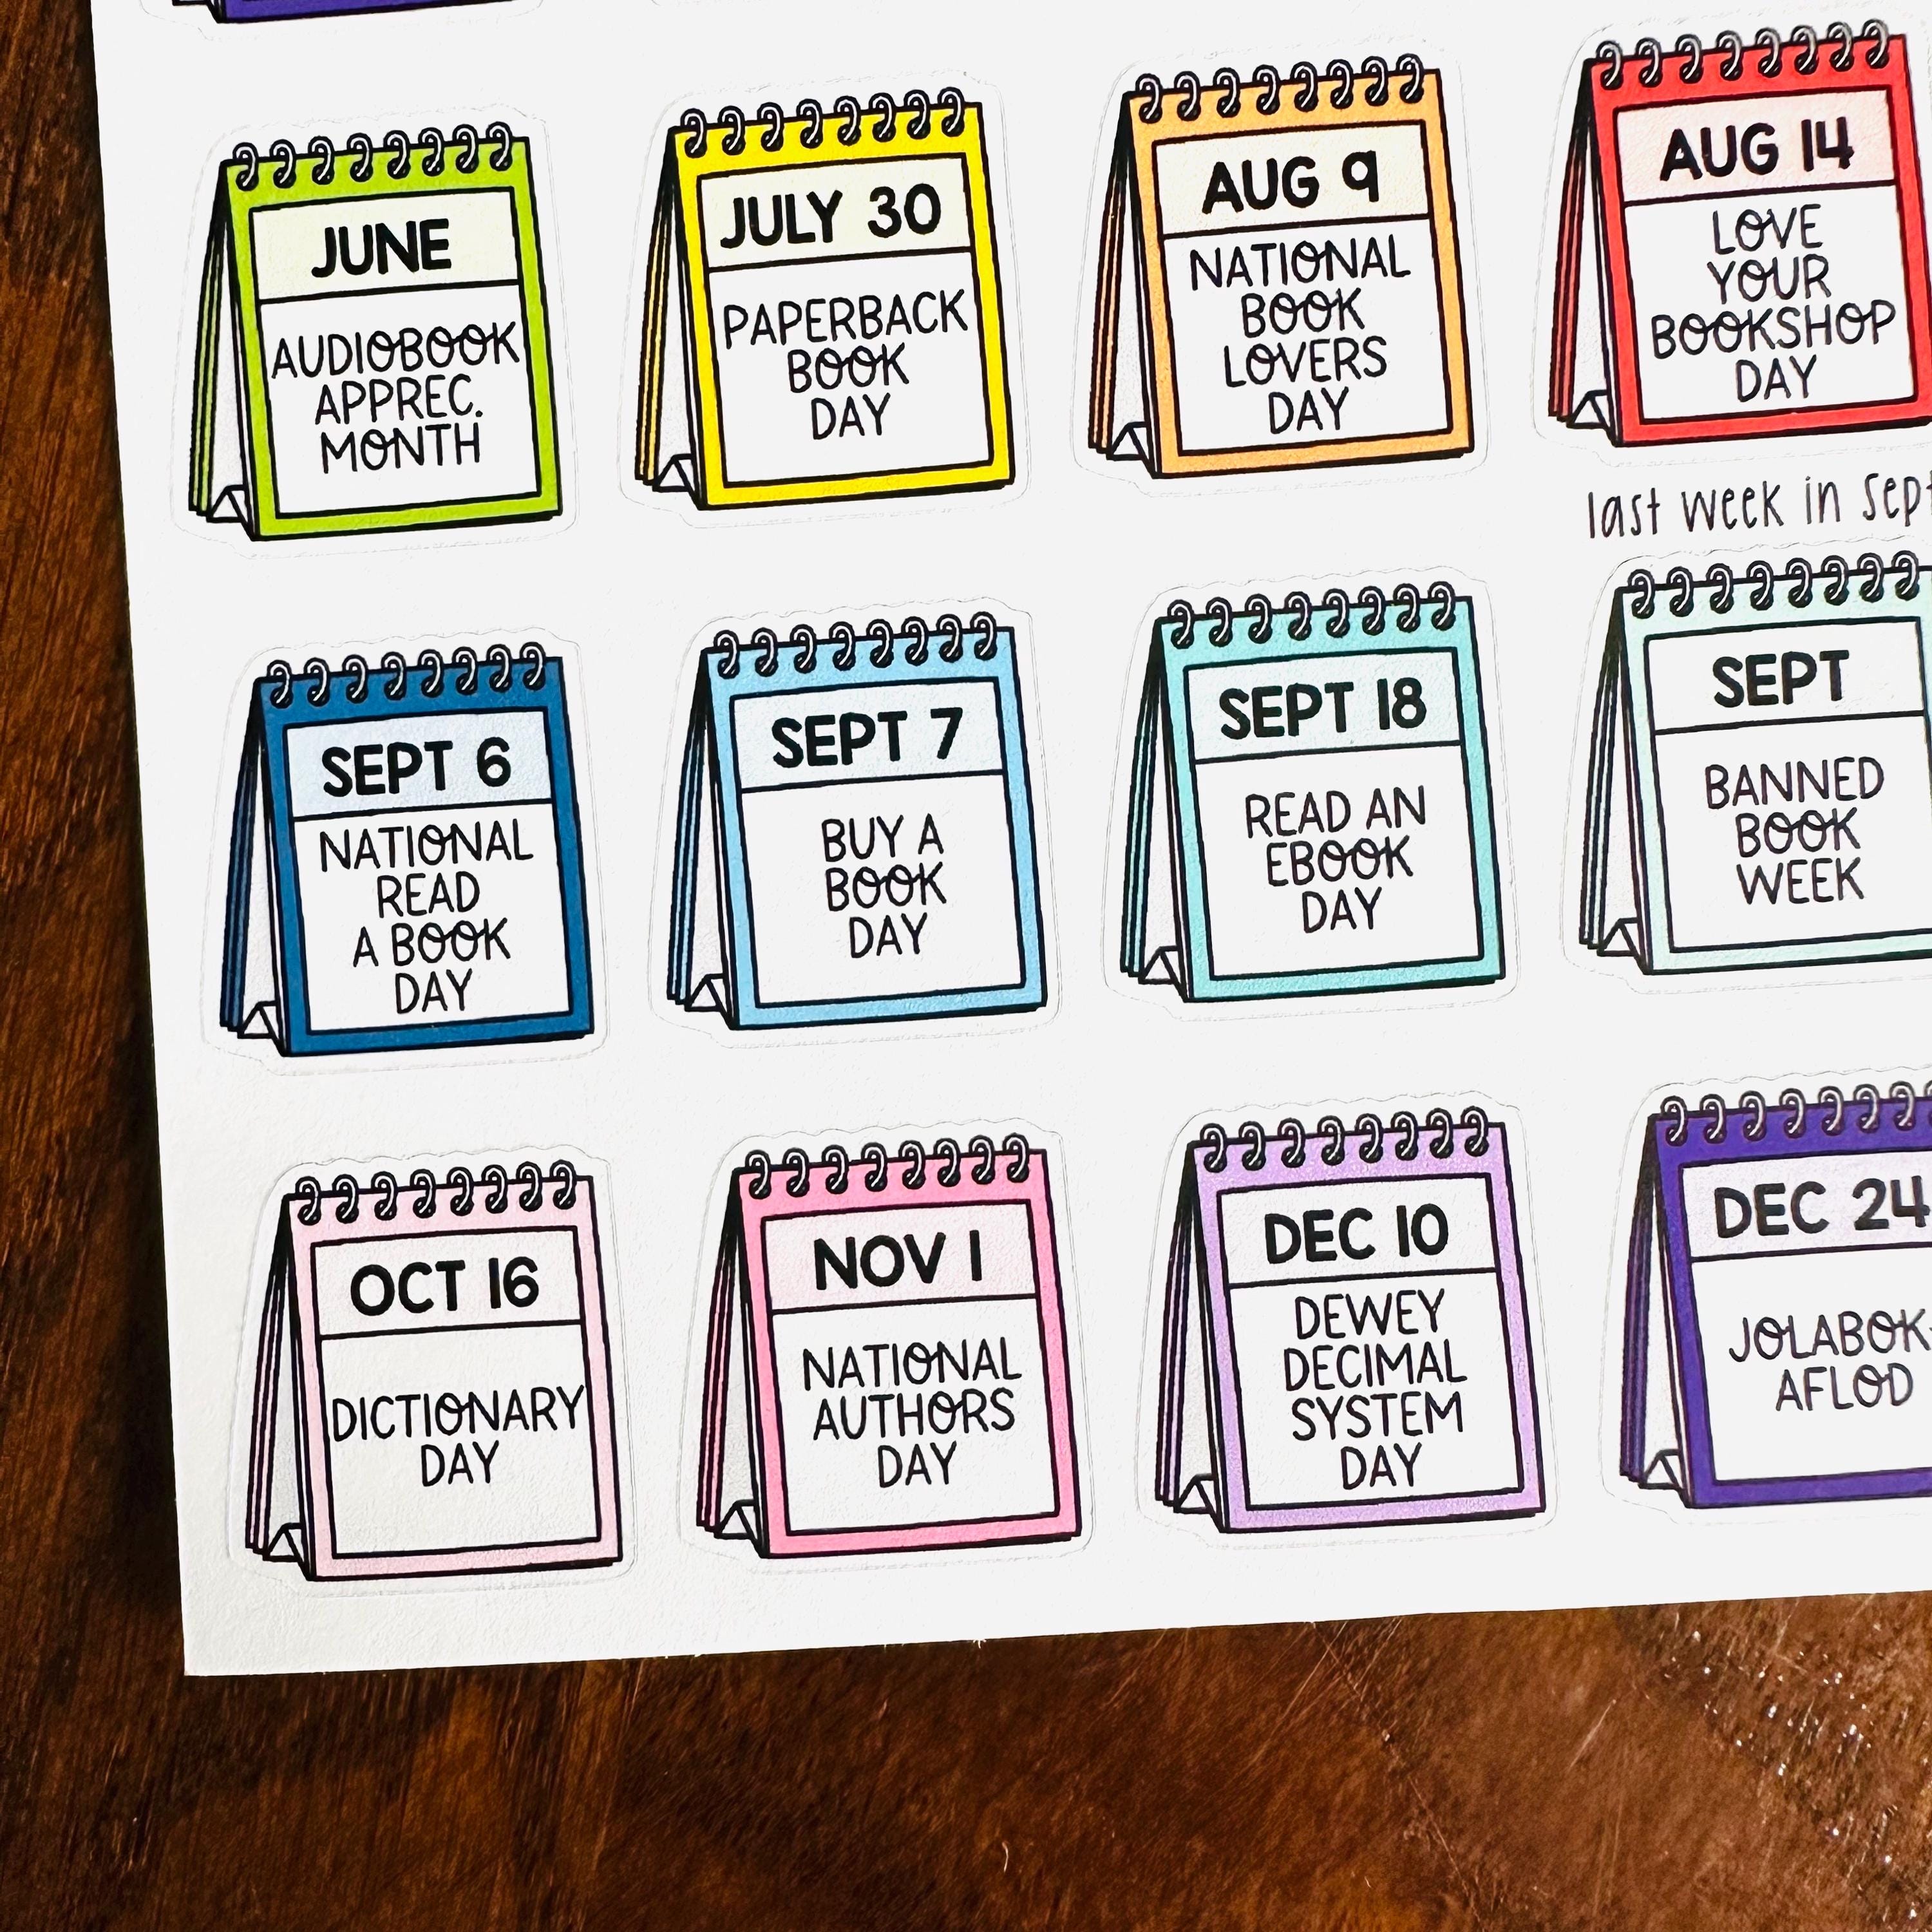 JUNE
AUDIOBOOK
APPREC.
MONTH
JULY 30
PAPERBACK
BOOK
DAY
AUG 9
NATIONAL
BOOK
LOVERS
DAY
AUG 14
LOVE
YOUR
BOOKSHOP
DAY
last week in Sept
SEPT 6
NATIONAL
READ
A BOOK
DAY
SEPT 7
BUY A
BOOK
DAY
SEPT 18
READ AN
EBOOK
DAY
SEPT
BANNED
BOOK
WEEK
OCT 16
DICTIONARY
DAY
NOV 1
NATIONAL
AUTHORS
DAY
DEC 10
DEWEY
DECIMAL
SYSTEM
DAY
DEC 24
JOLABOK-
AFLOD